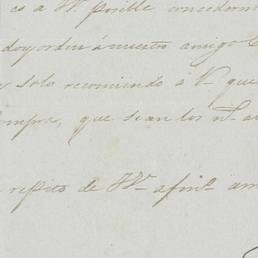 es a V. posible concederm
doy orden á nuestro amigo C
solo recomiendo á V. que
ompra, que sean los
repito de V. afmo. am